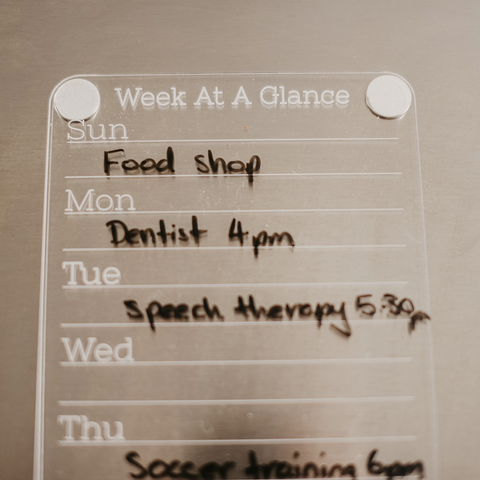 Week At A Glance
Sun
Food shop
Mon
Dentist 4pm
Tue
Speech therapy 5:30pm
Wed
Thu
Soccer training 6pm